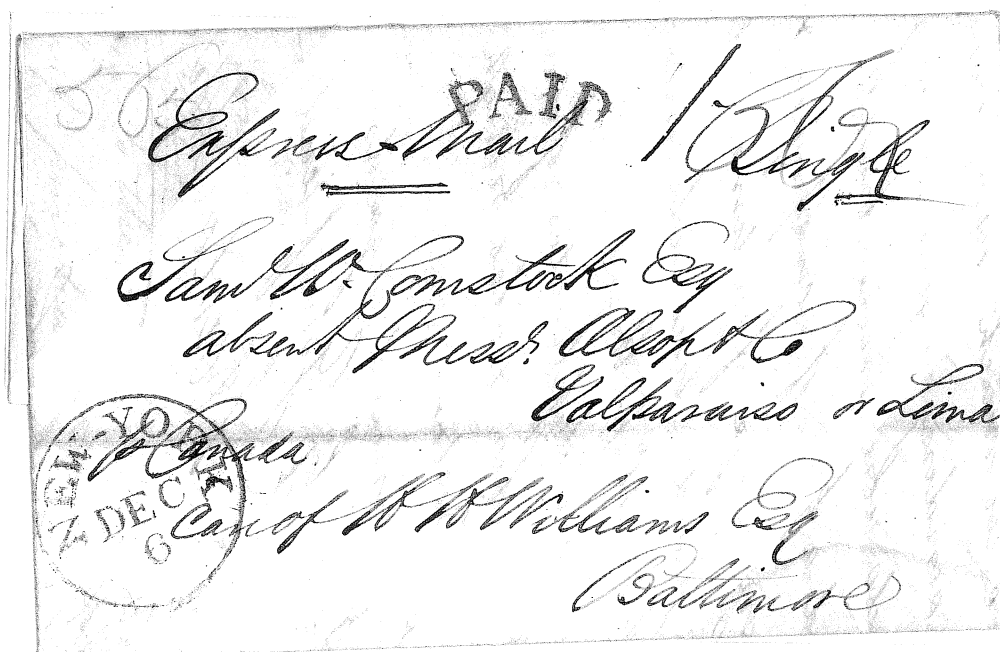 PAID
Express Mail / Single
Saml W. Comstock Esq
absent Messrs. Alsop & Co
Valparaiso or Lima
pr Canada
care of W H Williams Esq
Baltimore
NEW-YORK
DEC
6